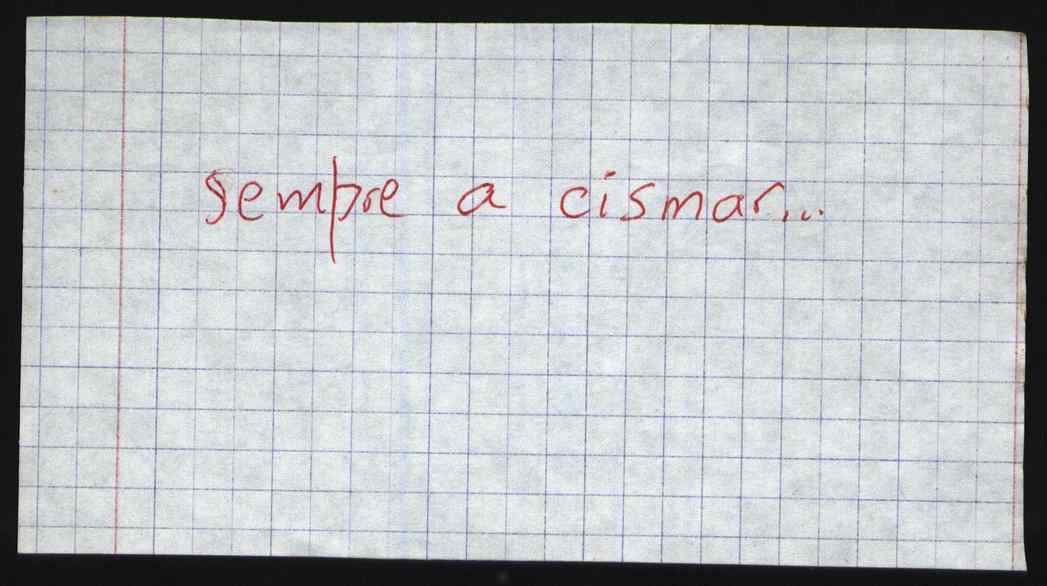 sempre a cismar...